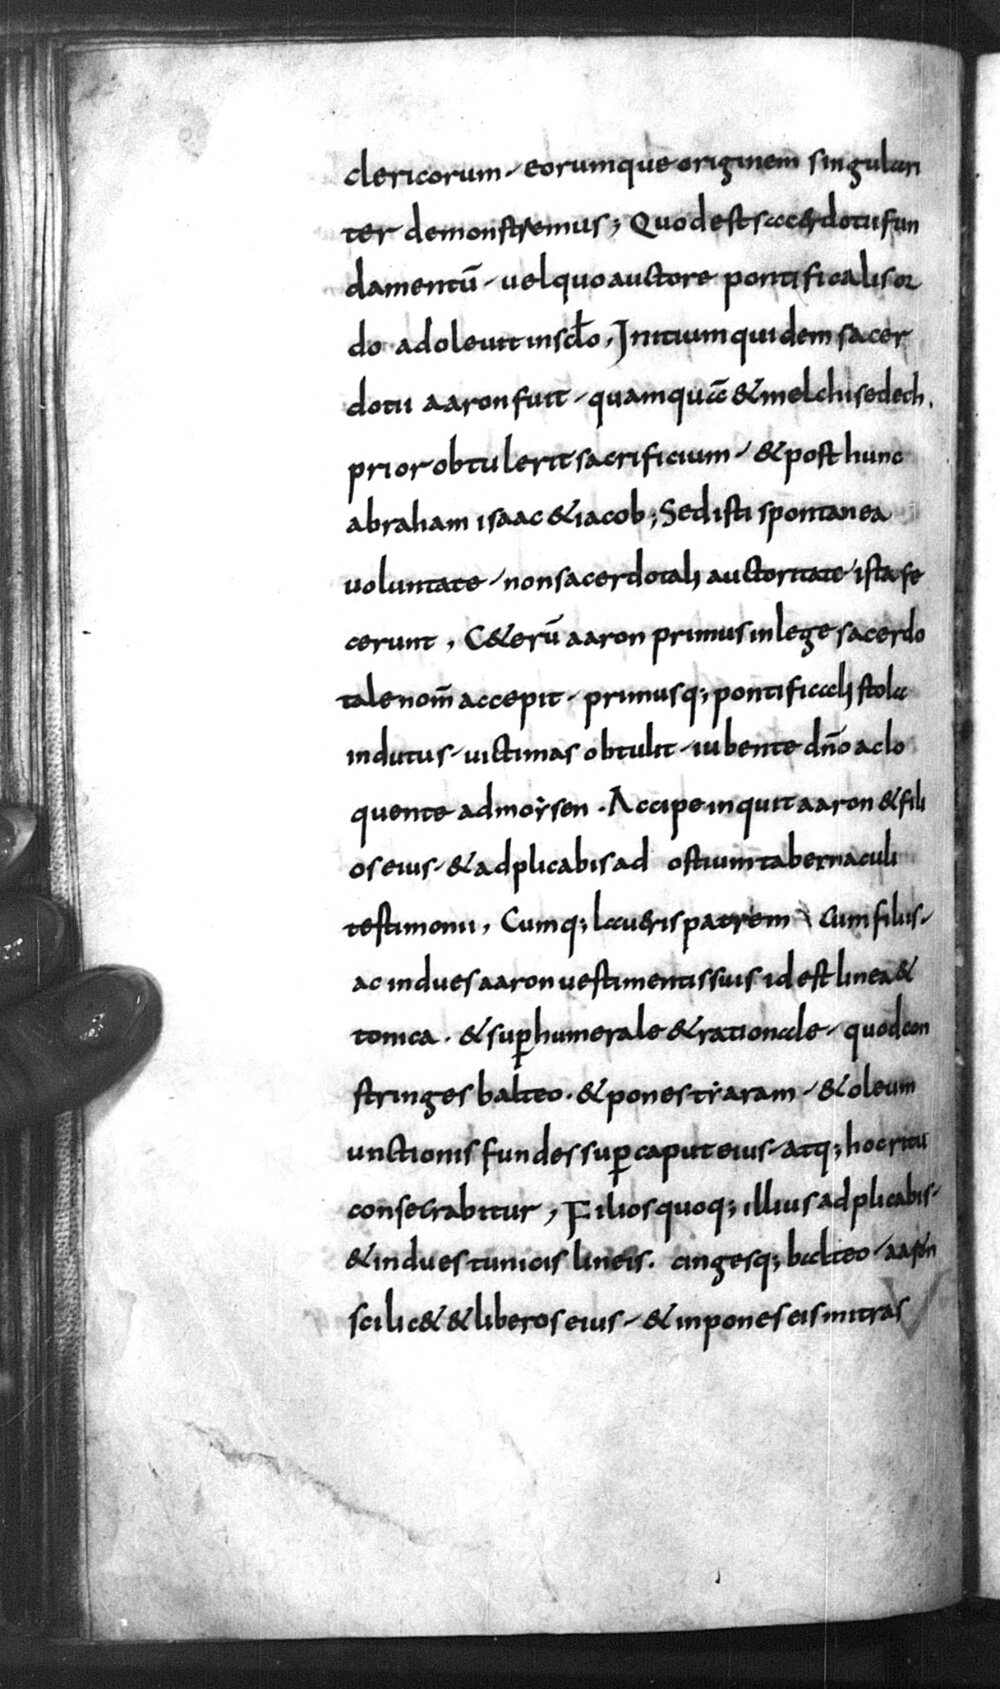 clericorum, eorumque originem singulari
ter demonstremus; Quod est sacerdotii fun
damentū, uel quo auctore pontificalis or
do adoleuit in scło, Initium quidem sacer
dotii aaron fuit, quamquā & melchisedech.
prior obtulerit sacrificium, & post hunc
abraham isaac & iacob; Sed isti spontanea
uoluntate, non sacerdotali auctoritate ista fe
cerunt, C&erū aaron primus in lege sacerdo
tale nom̄ accepit, primusq; pontificali stola
indutus, uictimas obtulit, iubente dn̄o ac lo
quente ad moẏsen. Accipe inquit aaron & fili
os eius, & adplicabis ad ostium tabernaculi
testimonii, Cumq; laueris patrem cum filiis,
ac indues aaron uestimentis suis id est linea &
tonica. & suꝑhumerale & rationale, quod con
stringes balteo. & pones tẏaram, & oleum
unctionis fundes suꝑ caput eius, atq; hoc ritu
consecrabitur, Filios quoq; illius adplicabis,
& indues tunicis lineis. cingesq; balteo, aaron
scilic& & liberos eius, & inpones eis mitras